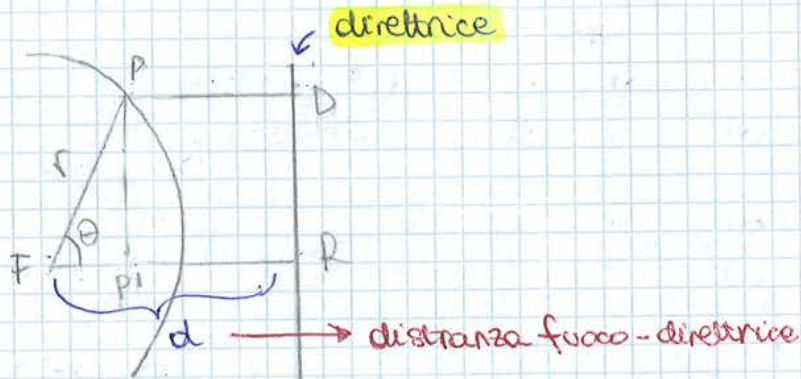 direttrice
P
D
r
θ
F
P'
R
d → distranza fuoco-direttrice